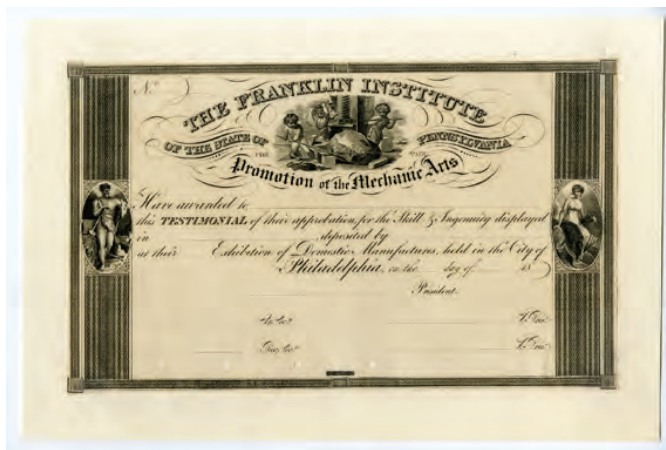 No.
THE FRANKLIN INSTITUTE
OF THE STATE OF PENNSYLVANIA
FOR THE
Promotion of the Mechanic Arts
Have awarded to
this TESTIMONIAL of their approbation, for the Skill & Ingenuity displayed
in deposited by
at their Exhibition of Domestic Manufactures, held in the City of
Philadelphia, on the day of 18
President.